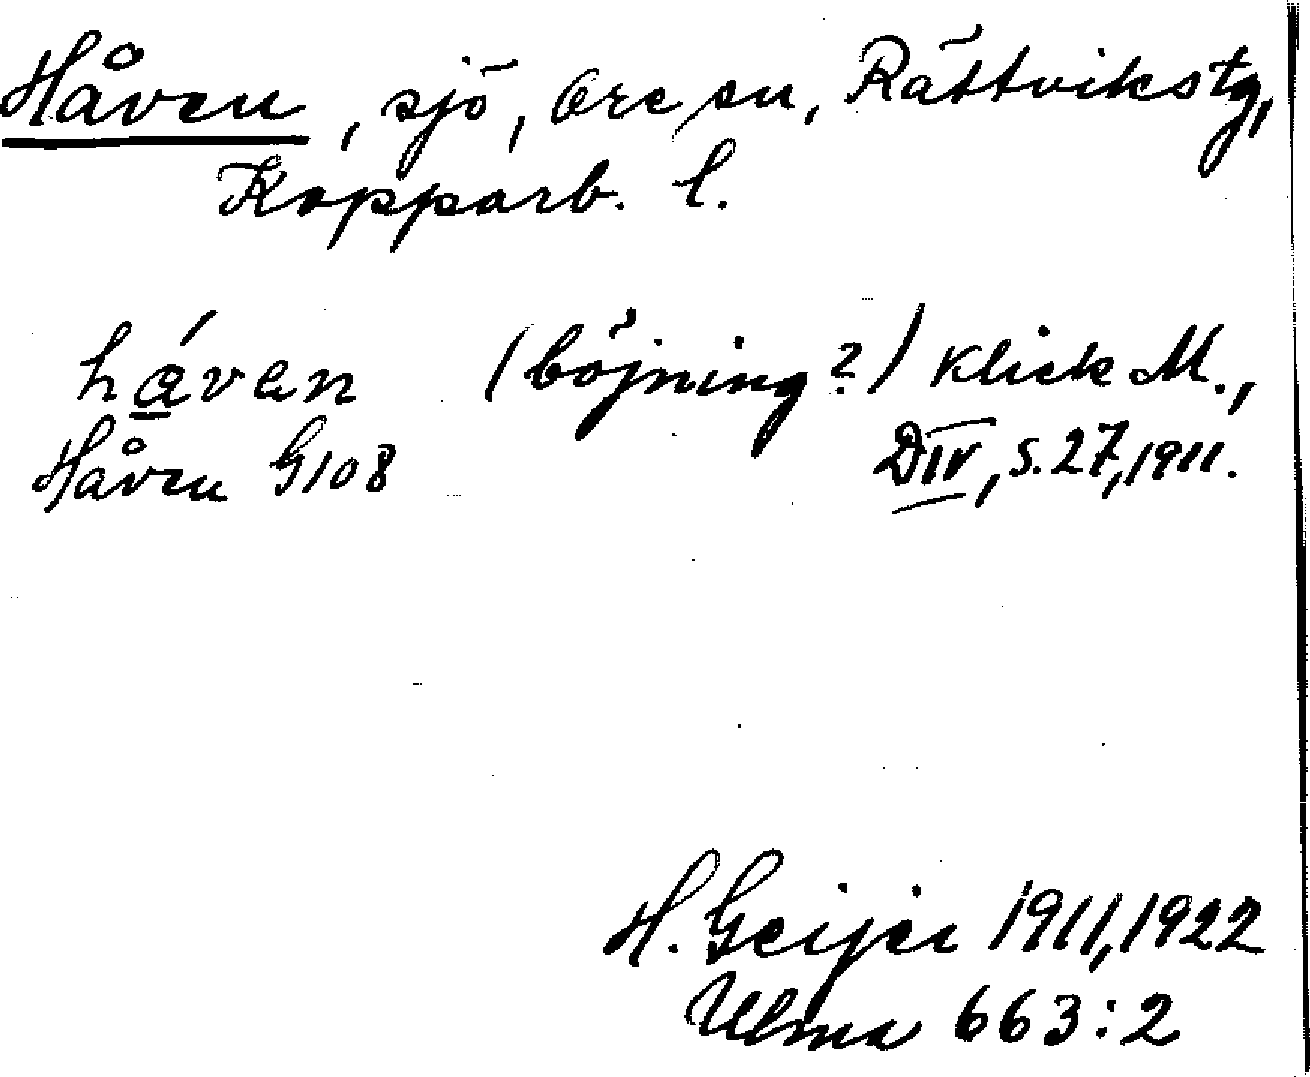 Håven, sjö, Ore sn, Rättvikstg,
Kopparb. l.
hа́ven (böjning?) Klick M.,
Håven G108 DIV, s. 27, 1911.
H. Geijer 1911, 1922
Ulma 663:2